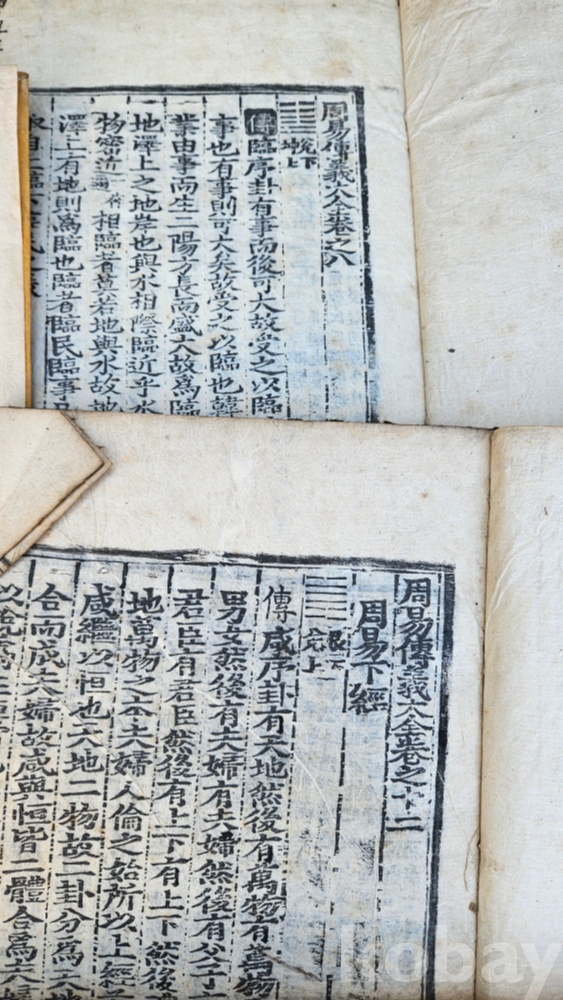 周易傳義大全卷之八
兌下
坤上
傳臨序卦有事而後可大故受之以臨
事也有事則可大矣故受之以臨也韓
業由事而生二陽方長而盛大故爲臨
地澤上之地岸也與水相際臨近乎水
物密近 相臨者莫若地與水故地
澤上有地則爲臨也臨者臨民臨事
周易傳義大全卷之十二
周易下經
艮下
兌上
傳咸序卦有天地然後有萬物有萬物
男女然後有夫婦有夫婦然後有父子
君臣有君臣然後有上下有上下然後
地萬物之本夫婦人倫之始所以上經
咸繼以恒也天地二物故二卦分爲天地
合而成夫婦故咸與恒皆二體合爲夫
kobay